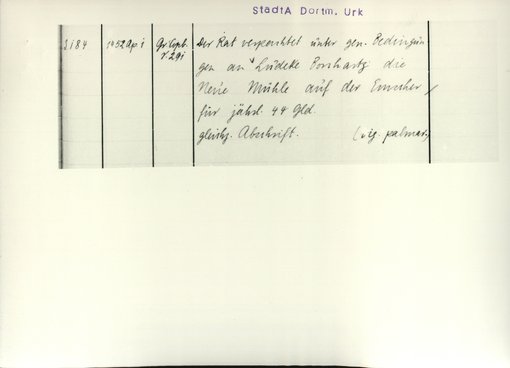 StadtA Dortm. Urk
2184 1452 Ap 1 Gr. Cypb. Der Rat verpachtet unter gen. Bedingun
gen an Lüdeke die
Neue Mühle auf der Emscher
für jährl. 44 Gld.
gleichz. Abschrift. (vig. palmar)